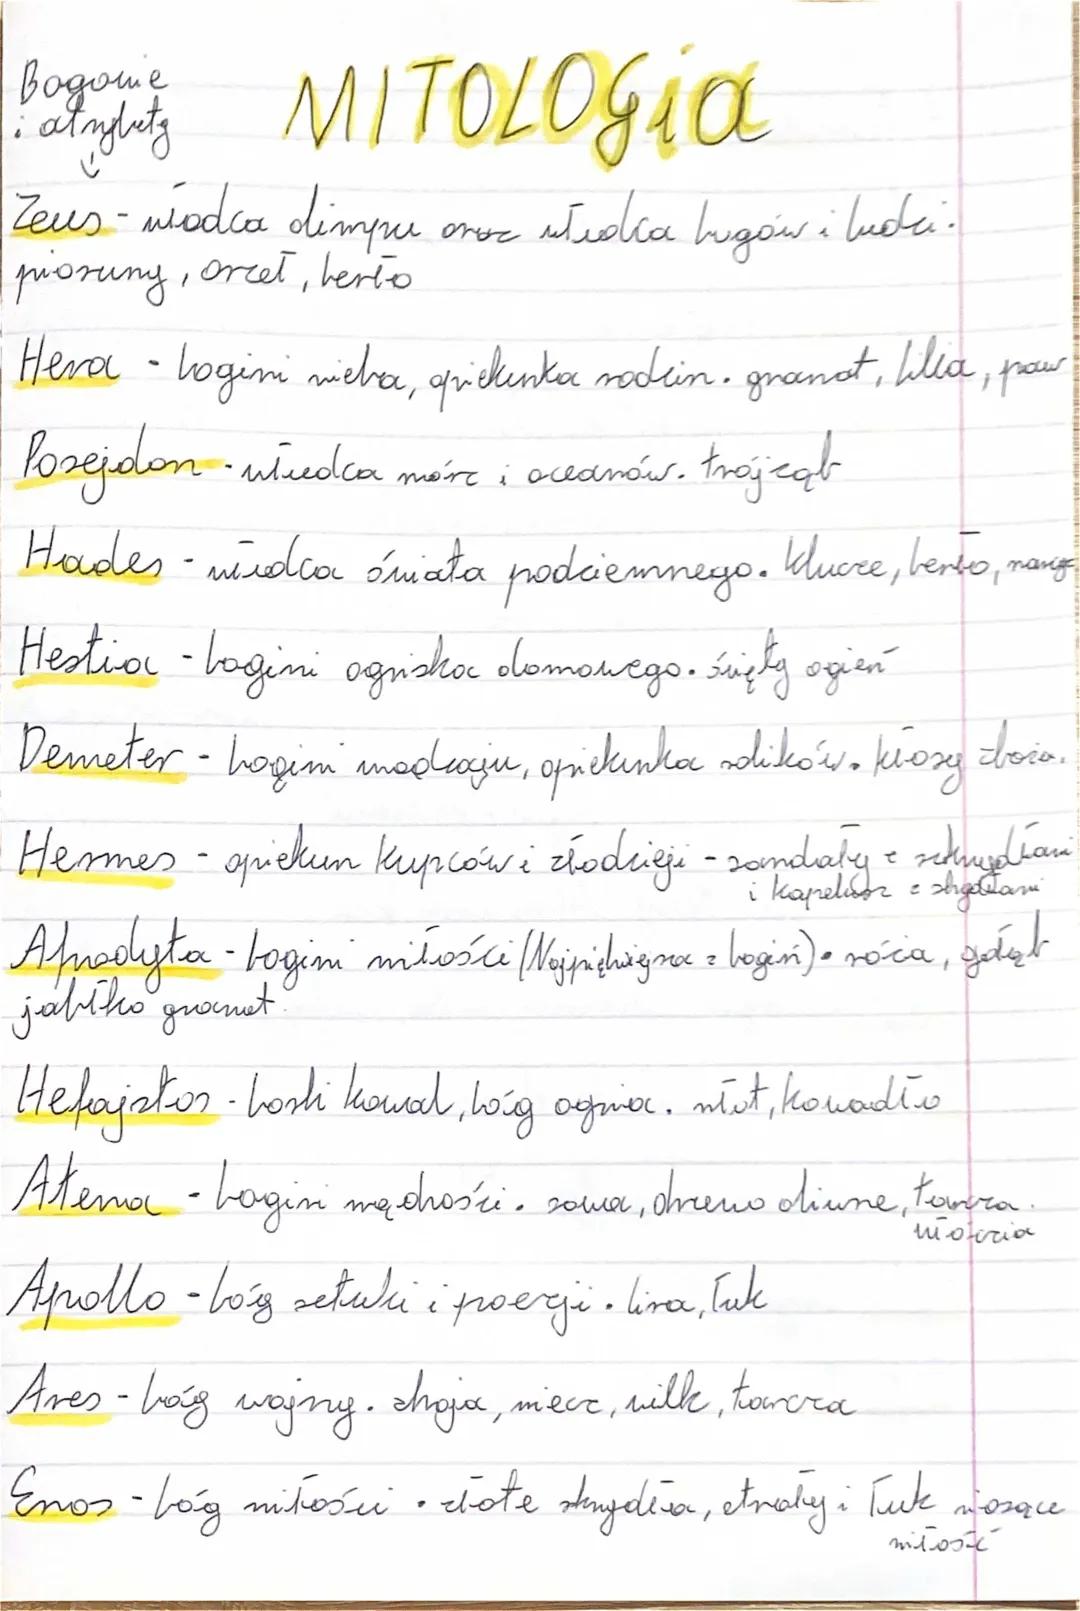 MITOLOGia
Bogowie
i atrybuty
Zeus - władca olimpu oraz władca bogów i ludzi.
pioruny, orzeł, berło
Hera - bogini nieba, opiekunka rodzin. granat, lilia, paw
Posejdon - władca mórz i oceanów. trójząb
Hades - władca świata podziemnego. klucze, berło,
Hestia - bogini ogniska domowego. święty ogień
Demeter - bogini urodzaju, opiekunka rolików. kłosy zboża.
Hermes - opiekun kupców i złodzieji - sandały z
i kapelusz z
Afrodyta - bogini miłości (Najpiękniejsza z bogiń). róża, gołąb
jabłko granat.
Hefajstos - boski kowal, bóg ognia. młot, kowadło
Atena - bogini mądrości. sowa, drzewo oliwne, tarcza.
włócznia
Apollo - bóg sztuki i poezji. lira, łuk
Ares - bóg wojny. zbroja, miecz, wilk, tarcza
Eros - bóg miłości. złote skrzydła, strzały i łuk niosące
miłość